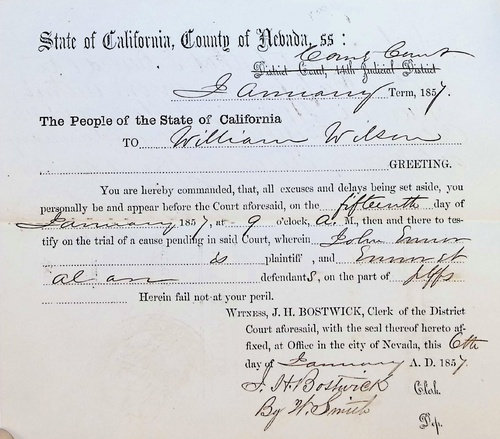 State of California, County of Nevada, ss:
County Court
District Court, 14th Judicial District
January Term, 1857.
The People of the State of California
TO William Wilson
GREETING.
You are hereby commanded, that, all excuses and delays being set aside, you
personally be and appear before the Court aforesaid, on the fifteenth day of
January 1857, at 9 o'clock, A. M., then and there to tes-
tify on the trial of a cause pending in said Court, wherein John
is plaintiff, and
al are defendantS, on the part of plffs
Herein fail not at your peril.
WITNESS, J. H. BOSTWICK, Clerk of the District
Court aforesaid, with the seal thereof hereto af-
fixed, at Office in the city of Nevada, this 6th
day of January A. D. 1857.
J. H. Bostwick Clerk.
By W. Smith
Dep.